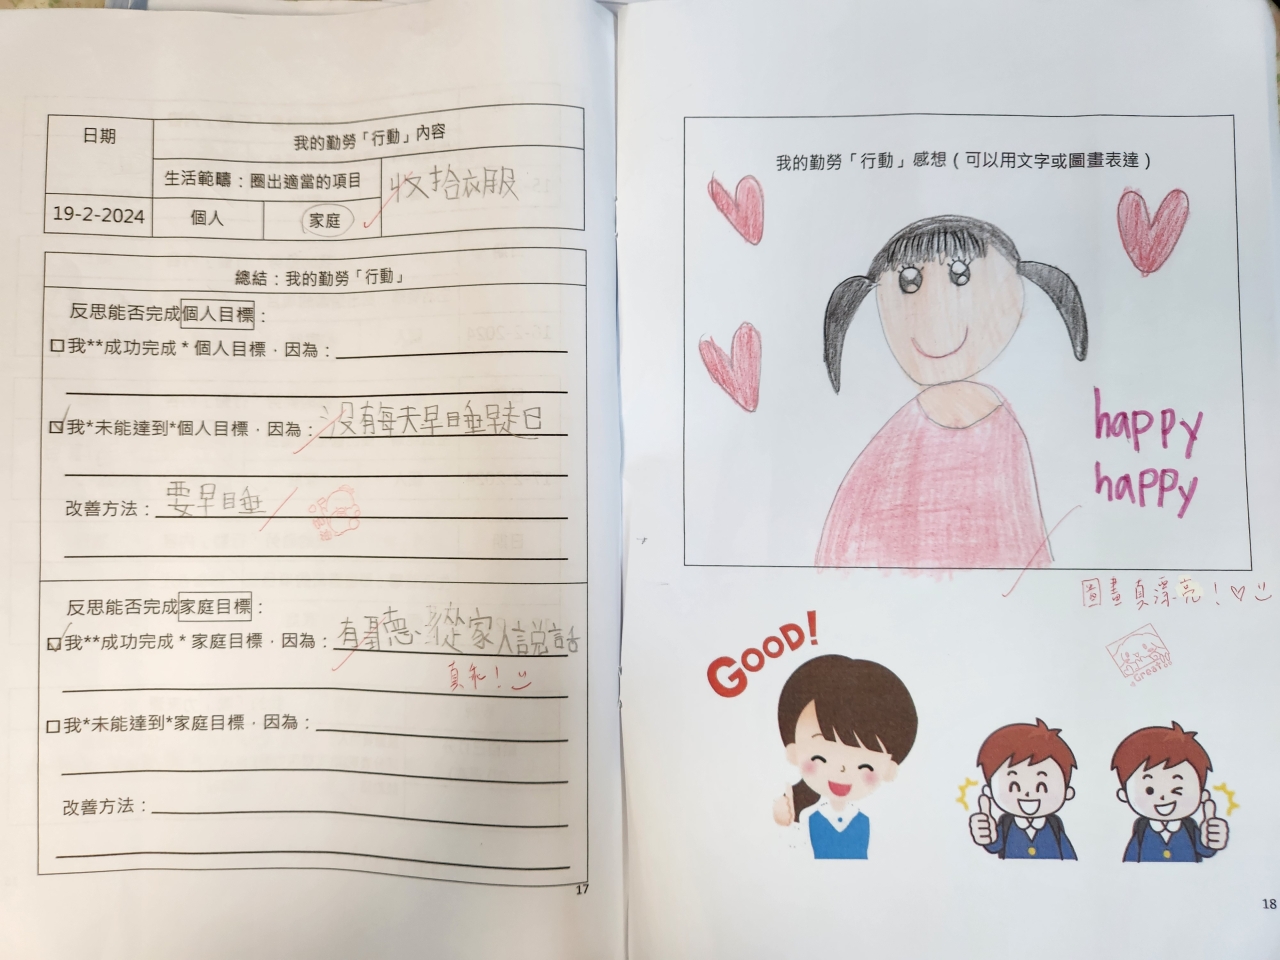 日期
我的勤勞「行動」內容
生活範疇：圈出適當的項目
收拾衣服
19-2-2024
個人
家庭
總結：我的勤勞「行動」
反思能否完成個人目標：
我**成功完成*個人目標，因為：
我*未能達到*個人目標，因為：沒有每天早睡早起
改善方法：要早睡
反思能否完成家庭目標：
我**成功完成*家庭目標，因為：有聽從家人說話
真乖！
我*未能達到*家庭目標，因為：
改善方法：
17
我的勤勞「行動」感想（可以用文字或圖畫表達）
happy
happy
圖畫真漂亮！
GOOD!
Great!
18